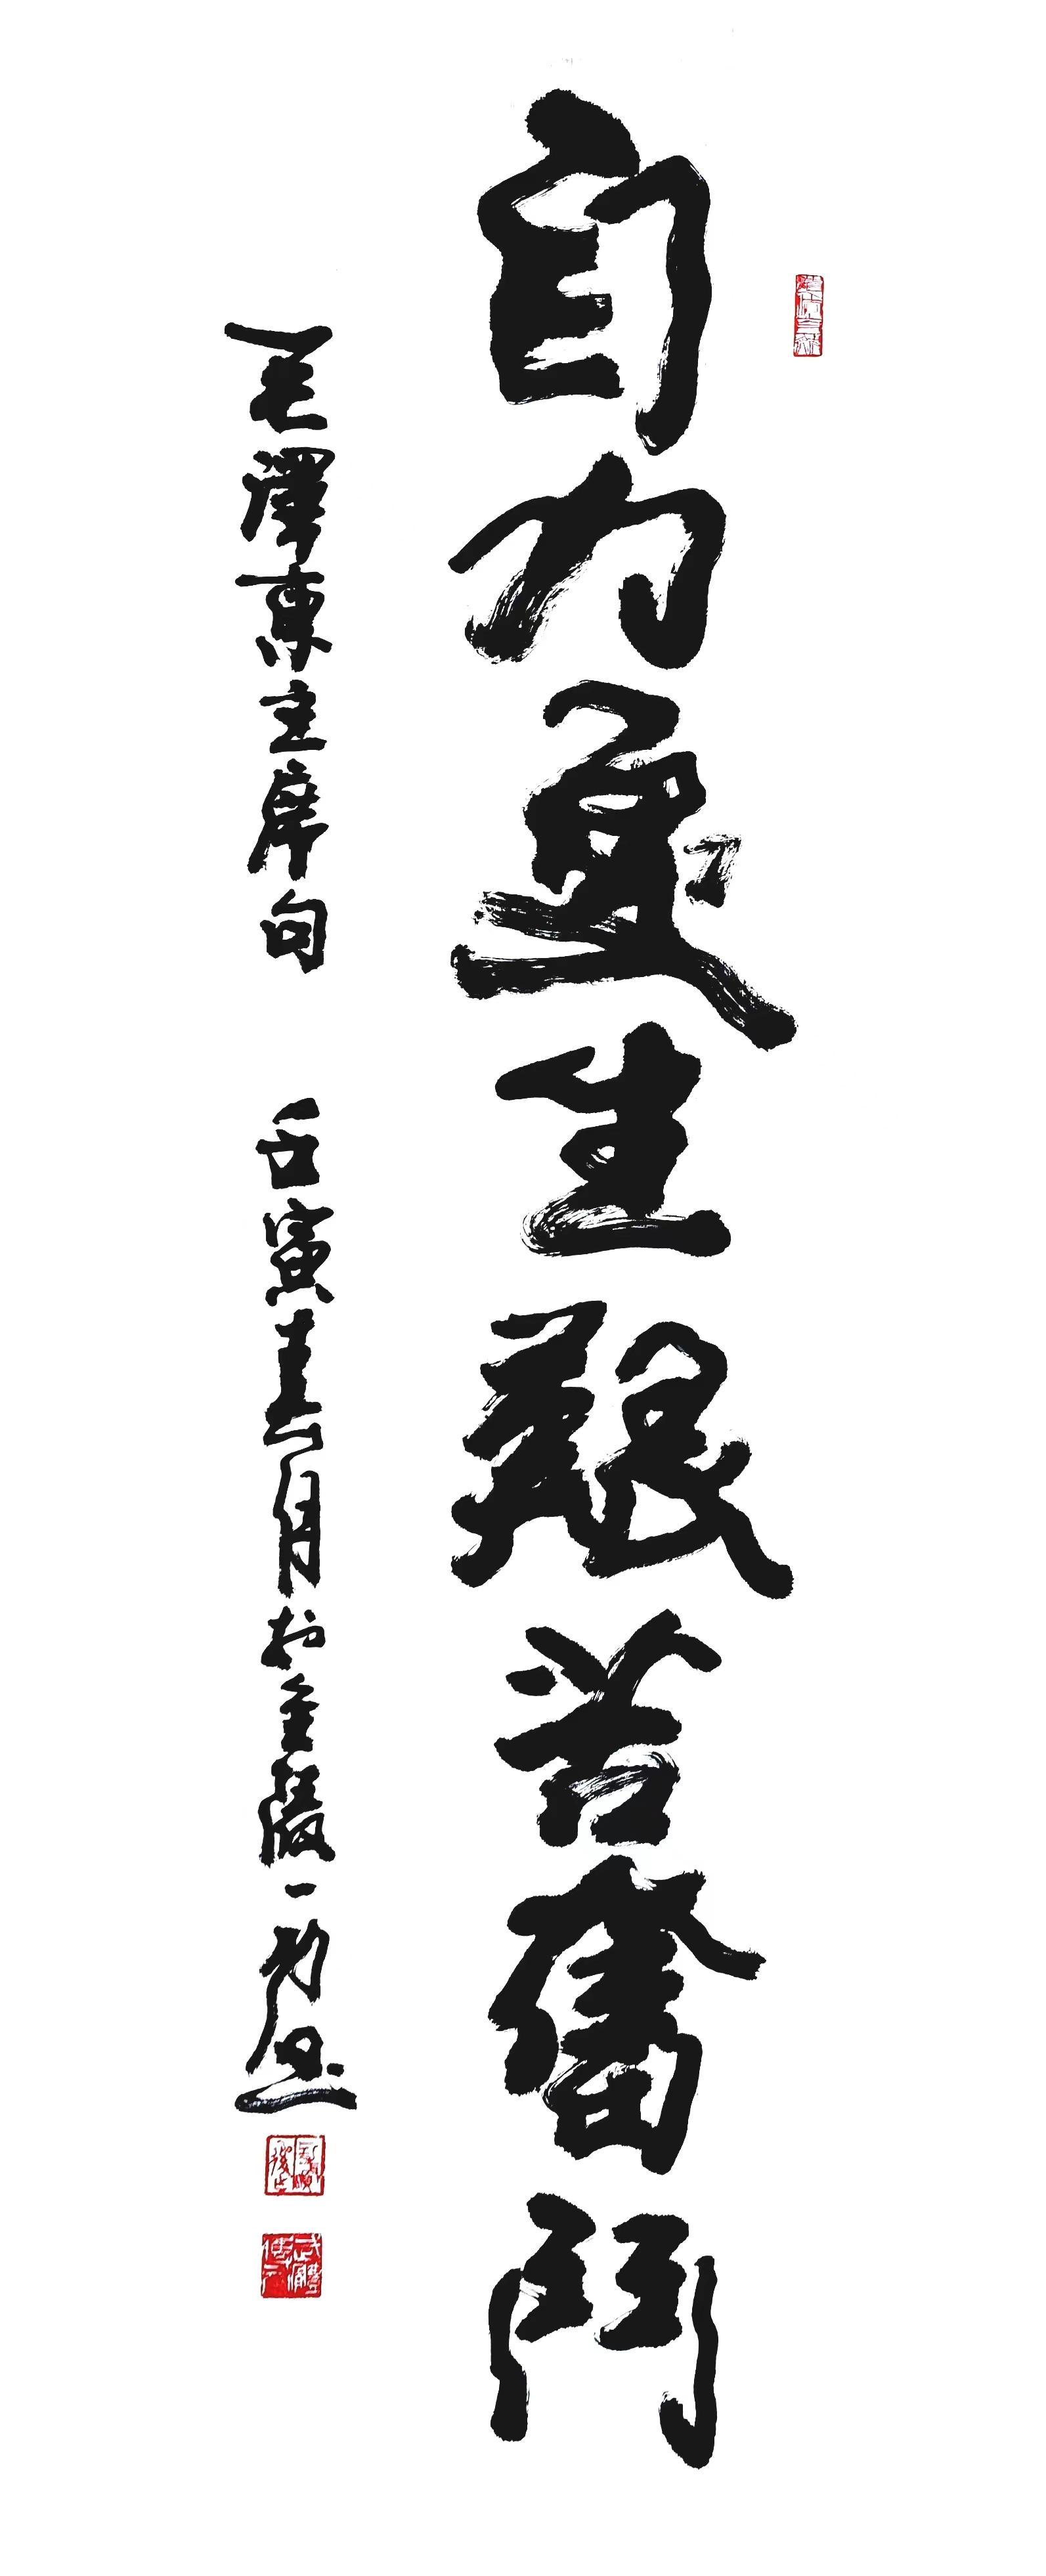 自力更生艱苦奮鬥
毛澤東主席句 壬寅春月於金陵一功書